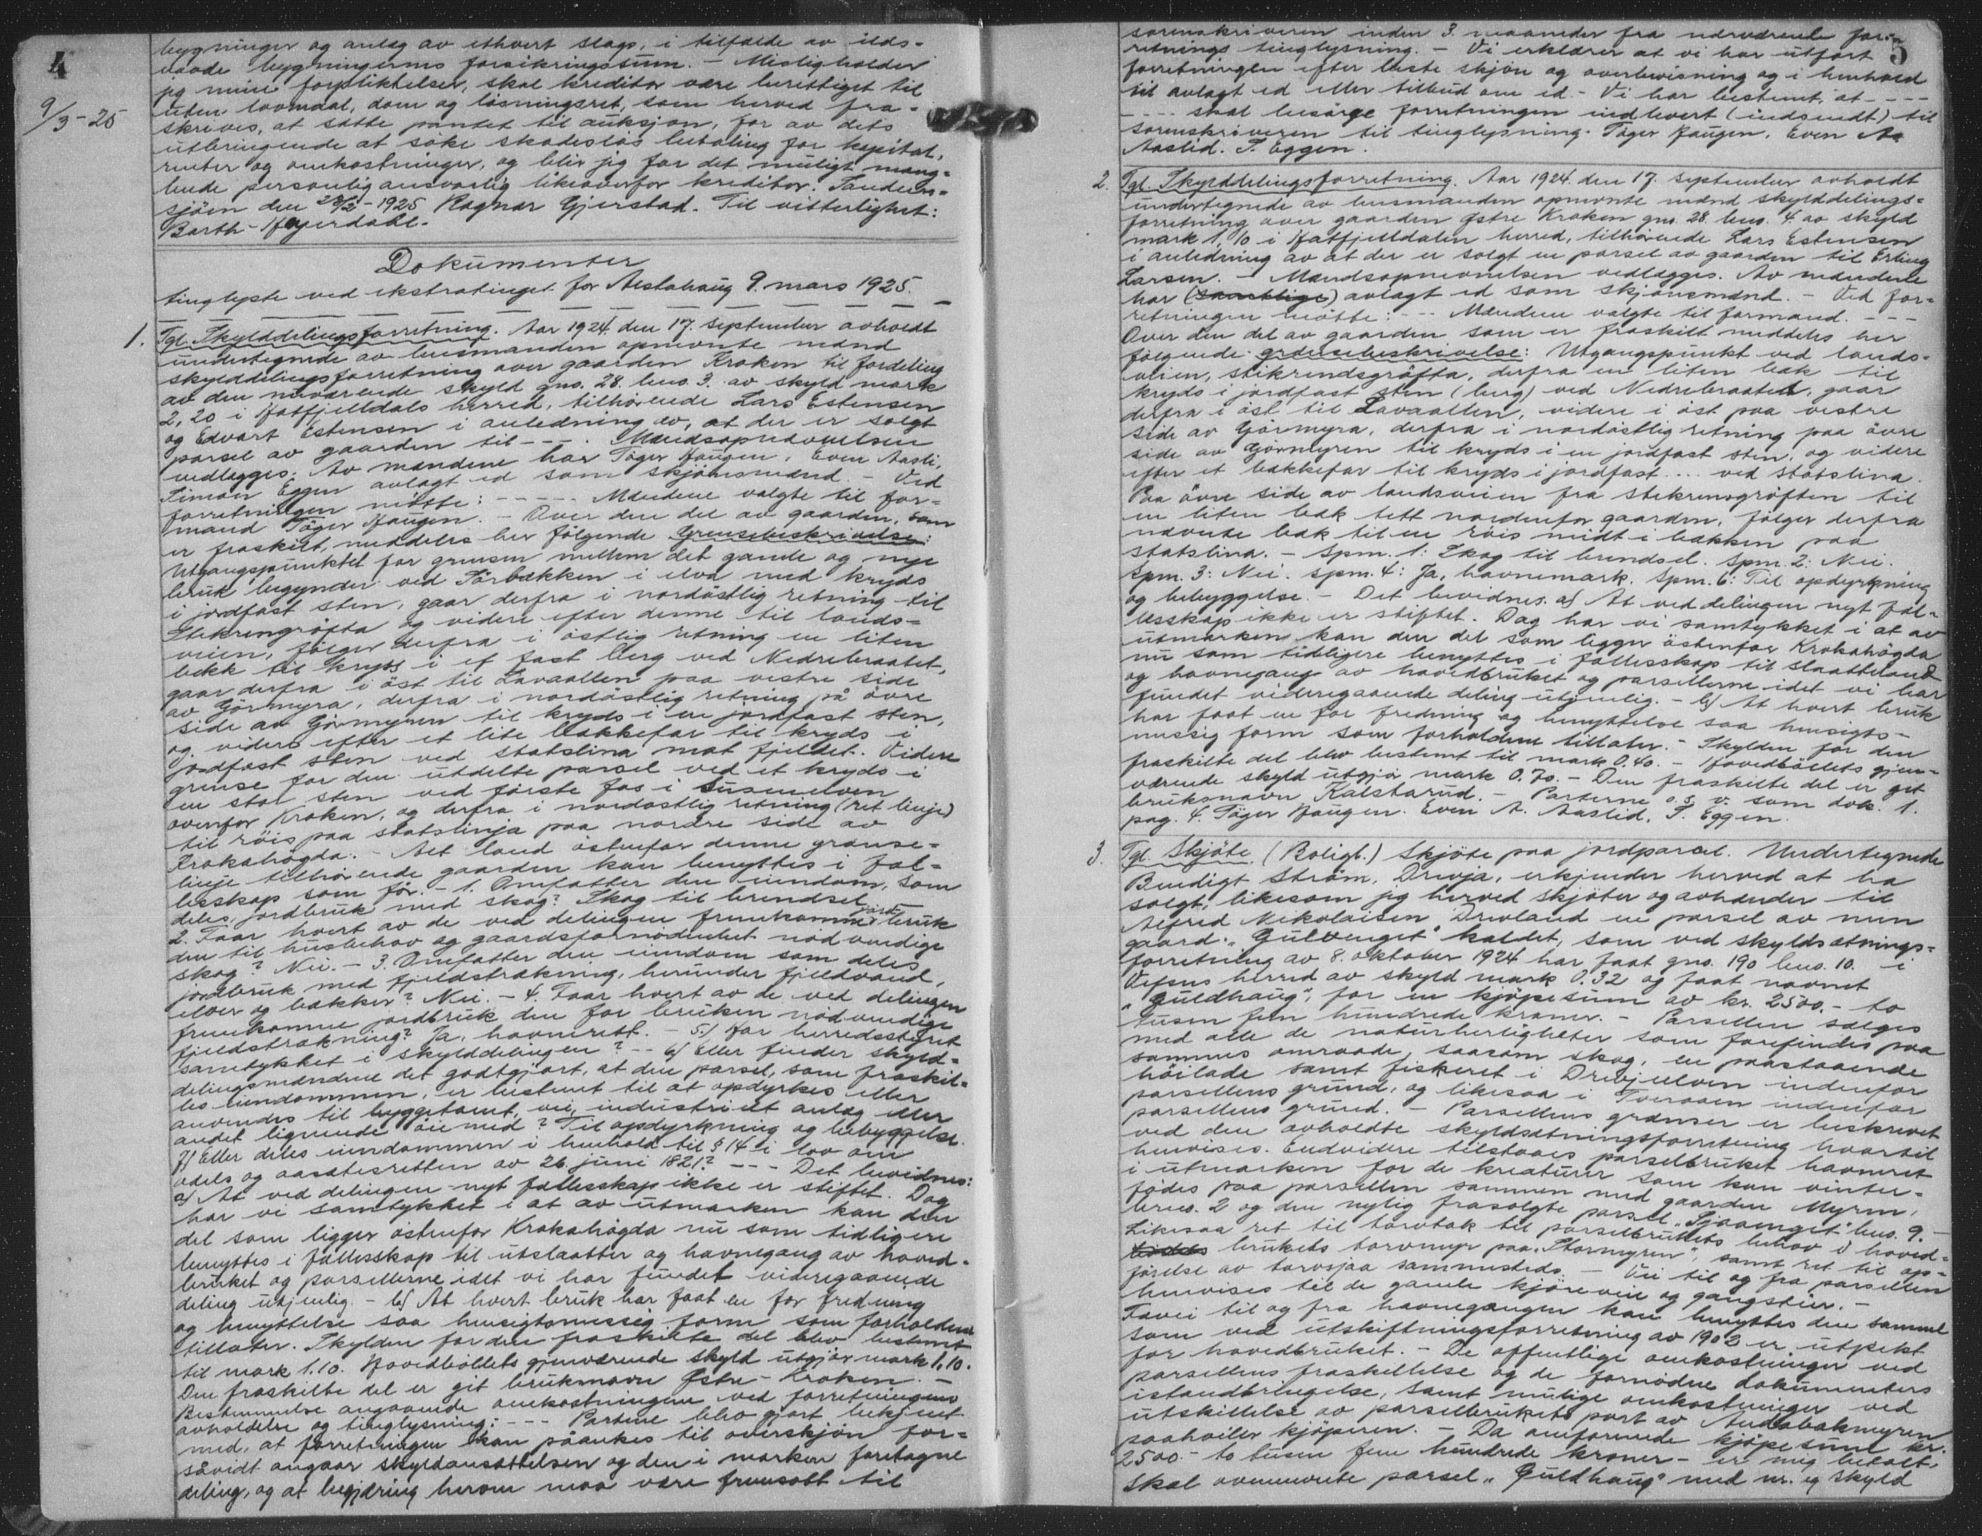 4
9/3-25
bygninger og anlæg av ethvert slags, i tilfælde av ilds-
vaade bygningernes forsikringssum. - Misligholder
jeg mine forpliktelser, skal kreditor være berettiget til
uten lovmaal, dom og løsningsret, som herved fra-
skrives, at sætte pantet til auksjon, for av dets
utbringende at søke skadesløs betaling for kapital,
renter og omkostninger, og blir jeg for det muligt mang-
lende personlig ansvarlig likeoverfor kreditor. Sandnes-
sjøen den 28/2-1925 Ragnar Gjerstad. Til vitterlighet:
Barth-Heyerdahl.
Dokumenter
tinglyste ved ekstratinget for Alstahaug 9. mars 1925.
1. Tgl. Skylddelingsforretning. Aar 1924 den 17. september avholdt
undertegnede av lensmanden opnevnte mænd
skylddelingsforretning over gaarden Kroken til fordeling
av den nuværende skyld gns. 28. bns. 3. av skyld mark
2,20 i Hatfjelldals herred, tilhørende Lars Estensen
og Edvart Estensen i anledning av, at der er solgt
parsel av gaarden til - - -. Mændsopnævnelsen
vedlægges. Av mændene har Tøger Haugen, Even Aasli,
Simon Eggen avlagt ed som skjønsmænd - Ved
forretningen møtte: - - - - - Mændene valgte til for-
mand Tøger Haugen. - Over den del av gaarden, som
er fraskilt, meddeles her følgende Grænsebeskrivelse:
Utgangspunktet for grensen mellem det gamle og nye
bruk begynder ved Tørbækken i elva med kryds
i jordfast sten, gaar derfra i nordøstlig retning til
Stikrengrøfta og videre efter denne til lands-
veien, følger derfra i østlig retning en liten
bekk til kryds i et fast berg ved Nedrebraatet,
gaar derfra i øst til Lavaallen paa vestre side
av Gørmyra, derfra i nordøstlig retning på øvre
side av Gørmyren til kryds i en jordfast sten,
og videre efter et lite bakkefar til kryds i
jordfast sten ved statslina mot fjeldet. Videre
grense for den utdelte parsel ved et kryds i
en stor sten ved første fos i Susenelven
ovenfor Kroken, og derfra i nordøstlig retning (ret linje)
til røis paa statslinja paa nordre side av
Krokahøgda. - Alt land østenfor denne grænse-
linje tilhørende gaarden kan benyttes i fæl-
lesskap som før. - 1. Omfatter den eiendom, som
deles, jordbruk med skog? Skog til brendsel.
2. Faar hvert av de ved delingen fremkomne jordbruk
den til husbehov og gaardsfornødenhet nødvendige
skog? Nei. - 3. Omfatter den eiendom som deles
jordbruk med fjeldstrækning, herunder fjeldvand,
elver og bækker? Nei. - 4. Faar hvert av de ved delingen
fremkomne jordbruk den for bruken nødvendige
fjeldstrækning? Ja, havnerett. - 5.) Har herredsstyret
samtykket i skylddelingen? - - 6) Eller finder skyld-
delingsmændene det godtgjort, at den parsel, som fraskil-
les eiendommen, er bestemt til at opdyrkes eller
anvendes til byggetomt, vei, industrielt anlæg eller
andet lignende øiemed? Til opdyrkning og bebyggelse.
7) Eller deles eiendommen i henhold til § 14 i lov om
odels og aasætesretten av 26 juni 1821? - - - Det bevidnes:
a) At ved delingen nyt fællesskap ikke er stiftet. Dog
har vi samtykket i at av utmarken kan den
del som ligger østenfor Krokahøgda nu som tidligere
benyttes i fællesskap til utslaatter og havnegang av hoved-
bruket og parsellerne idet vi har fundet videregaaende
deling utjenlig. - b) At hvert bruk har faat en for fredning
og benyttelse saa hensigtsmessig form som forholdene
tillater. Skylden for den fraskilte del blev bestemt
til mark 1.10. Hovedbøllets gjenværende skyld utgjør mark 1.10.
Den fraskilte del er git bruksnavn Østre-Kroken. -
Bestemmelse angaaende omkostningene ved forretningens
avholdelse og tinglysning: - - - Partene blev gjort bekjent
med, at forretningen kan påankes til overskjøn for-
såvidt angaar skyldansættelsen og den i marken foretagne
deling, og at begjæring herom maa være fremsatt til
5
sorenskriveren inden 3 maaneder fra nærværende for-
retnings tinglysning. - Vi erklærer at vi har utført
forretningen efter beste skjøn og overbevisning og i henhold
til avlagt ed eller tilbud om ed - Vi har bestemt, at - - - -
- - - - skal besørge forretningen indlevert (indsendt) til
sorenskriveren til tinglysning. Tøger Haugen. Even A.
Aaslid. S. Eggen.
2. Tgl. Skylddelingsforretning. Aar 1924 den 17. september avholdt
undertegnede av lensmanden opnevnte mænd skylddelings-
forretning over gaarden Østre Kroken gns. 28. bns. 4 av skyld
mark 1,10 i Hatfjelldalen herred, tilhørende Lars Estensen
i anledning av at der er solgt en parsel av gaarden til Erling
Larsen. - Mændsopnevnelsen vedlægges. Av mændene
har (samtlige) avlagt ed som skjønsmænd. - Ved for-
retningen møtte: - - - Mændene valgte til formand. - - -
Over den del av gaarden som er fraskilt meddeles her
følgende grænsebeskrivelse: Utgangspunkt ved lands-
veien, stikrendsgrøfta, derfra en liten bæk til
kryds i jordfast sten (berg) ved Nedrebraatet, gaar
derfra i øst til Lavaallen, videre i øst paa vestre
side av Gørmyra, derfra i nordøstlig retning paa øvre
side av Gjørmyren til kryds i en jordfast sten, og videre
efter et bakkefar til kryds i jordfast ... ved statslina.
Paa øvre side av landsveien fra stikrensgrøften til
en liten bæk tett nordenfor gaarden, følger derfra
nævnte bæk til en røis midt i bækken paa
statslina. - Spm. 1: Skog til brendsel. Spm. 2: Nei.
Spm. 3: Nei. Spm. 4: Ja, havnemark. Spm. 6: Til opdyrkning
og bebyggelse. - Det bevidnes. a) At ved delingen nyt fæl-
lesskap ikke er stiftet. Dog har vi samtykket i at av
utmarken kan den del som ligger østenfor Krokahøgda
nu som tidligere benyttes i fællesskap til slaatteland
og havnegang av hovedbruket og parsellerne idet vi har
fundet videregaaende deling utjenlig. - b) At hvert bruk
har faat en for fredning og benyttelse saa hensigts-
messig form som forholdene tillater. - Skylden for den
fraskilte del blev bestemt til mark 0.40. - Hovedbøllets gjen-
værende skyld utgjør mark 0.70. - Den fraskilte del er git
bruksnavn Kalstarud. - Parterne o. s. v. som dok. 1.
pag. 4. Tøger Haugen. Even A. Aaslid. S. Eggen.
3. Tgl. Skjøte (Boligl.) Skjøte paa jordparcel. Undertegnede
Bendigt Strøm, Drevja, erkjender herved at ha
solgt, likesom jeg herved skjøter og avhænder til
Alfred Nikolaisen Drevland en parsel av min
gaard. "Gulvenget" kaldet, som ved skyldsætnings-
forretning av 8. oktober 1924 har faat gns. 190 bns. 10. i
Vefsns herred av skyld mark 0.32 og faat navnet
"Guldhaug", for en kjøpesum av kr. 2500.- to
tusen fem hundrede kroner. - Parsellen sælges
med alle de naturherligheter som forefindes paa
sammes omraade, saasom skog, en paastaaende
høilade samt fiskeret i Drevjaelven indenfor
parsellens grund, og likesaa i Tveraaen indenfor
parsellens grund. - Parsellens grænser er beskrevet
ved den avholdte skyldsætningsforretning hvortil
henvises. Endvidere tilstaaes parselbruket havneret
i utmarken for de kreaturer som kan vinter-
fødes paa parsellen sammen med gaarden Myrm,
bns. 2 og den nylig frasolgte parsel "Sjaaenget" bns. 9. -
Likesaa ret til torvtak til parselbrukets behov i hoved-
brukets torvmyr paa "Stormyren", samt ret til op-
førelse av torvsjaa sammesteds. - Vei til og fra parsellen
henvises til de gamle kjøreveie og gangstier. -
Fævei til og fra havnegangen kan benyttes den samme
som ved utskiftningsforretning av 1903 er utpekt
for hovedbruket. - De offentlige omkostninger ved
parsellens fraskillelse og de fornødne dokumenters
istandbringelse, samt mulige omkostninger ved
utskillelse av parselbrukets part av Andabakmyren
paahviler kjøperen. - Da omforenede kjøpesum kr.
2500.- to tusen fem hundrede kroner - er mig betalt,
skal ovennevnte parsel "Guldhaug" med nr. og skyld